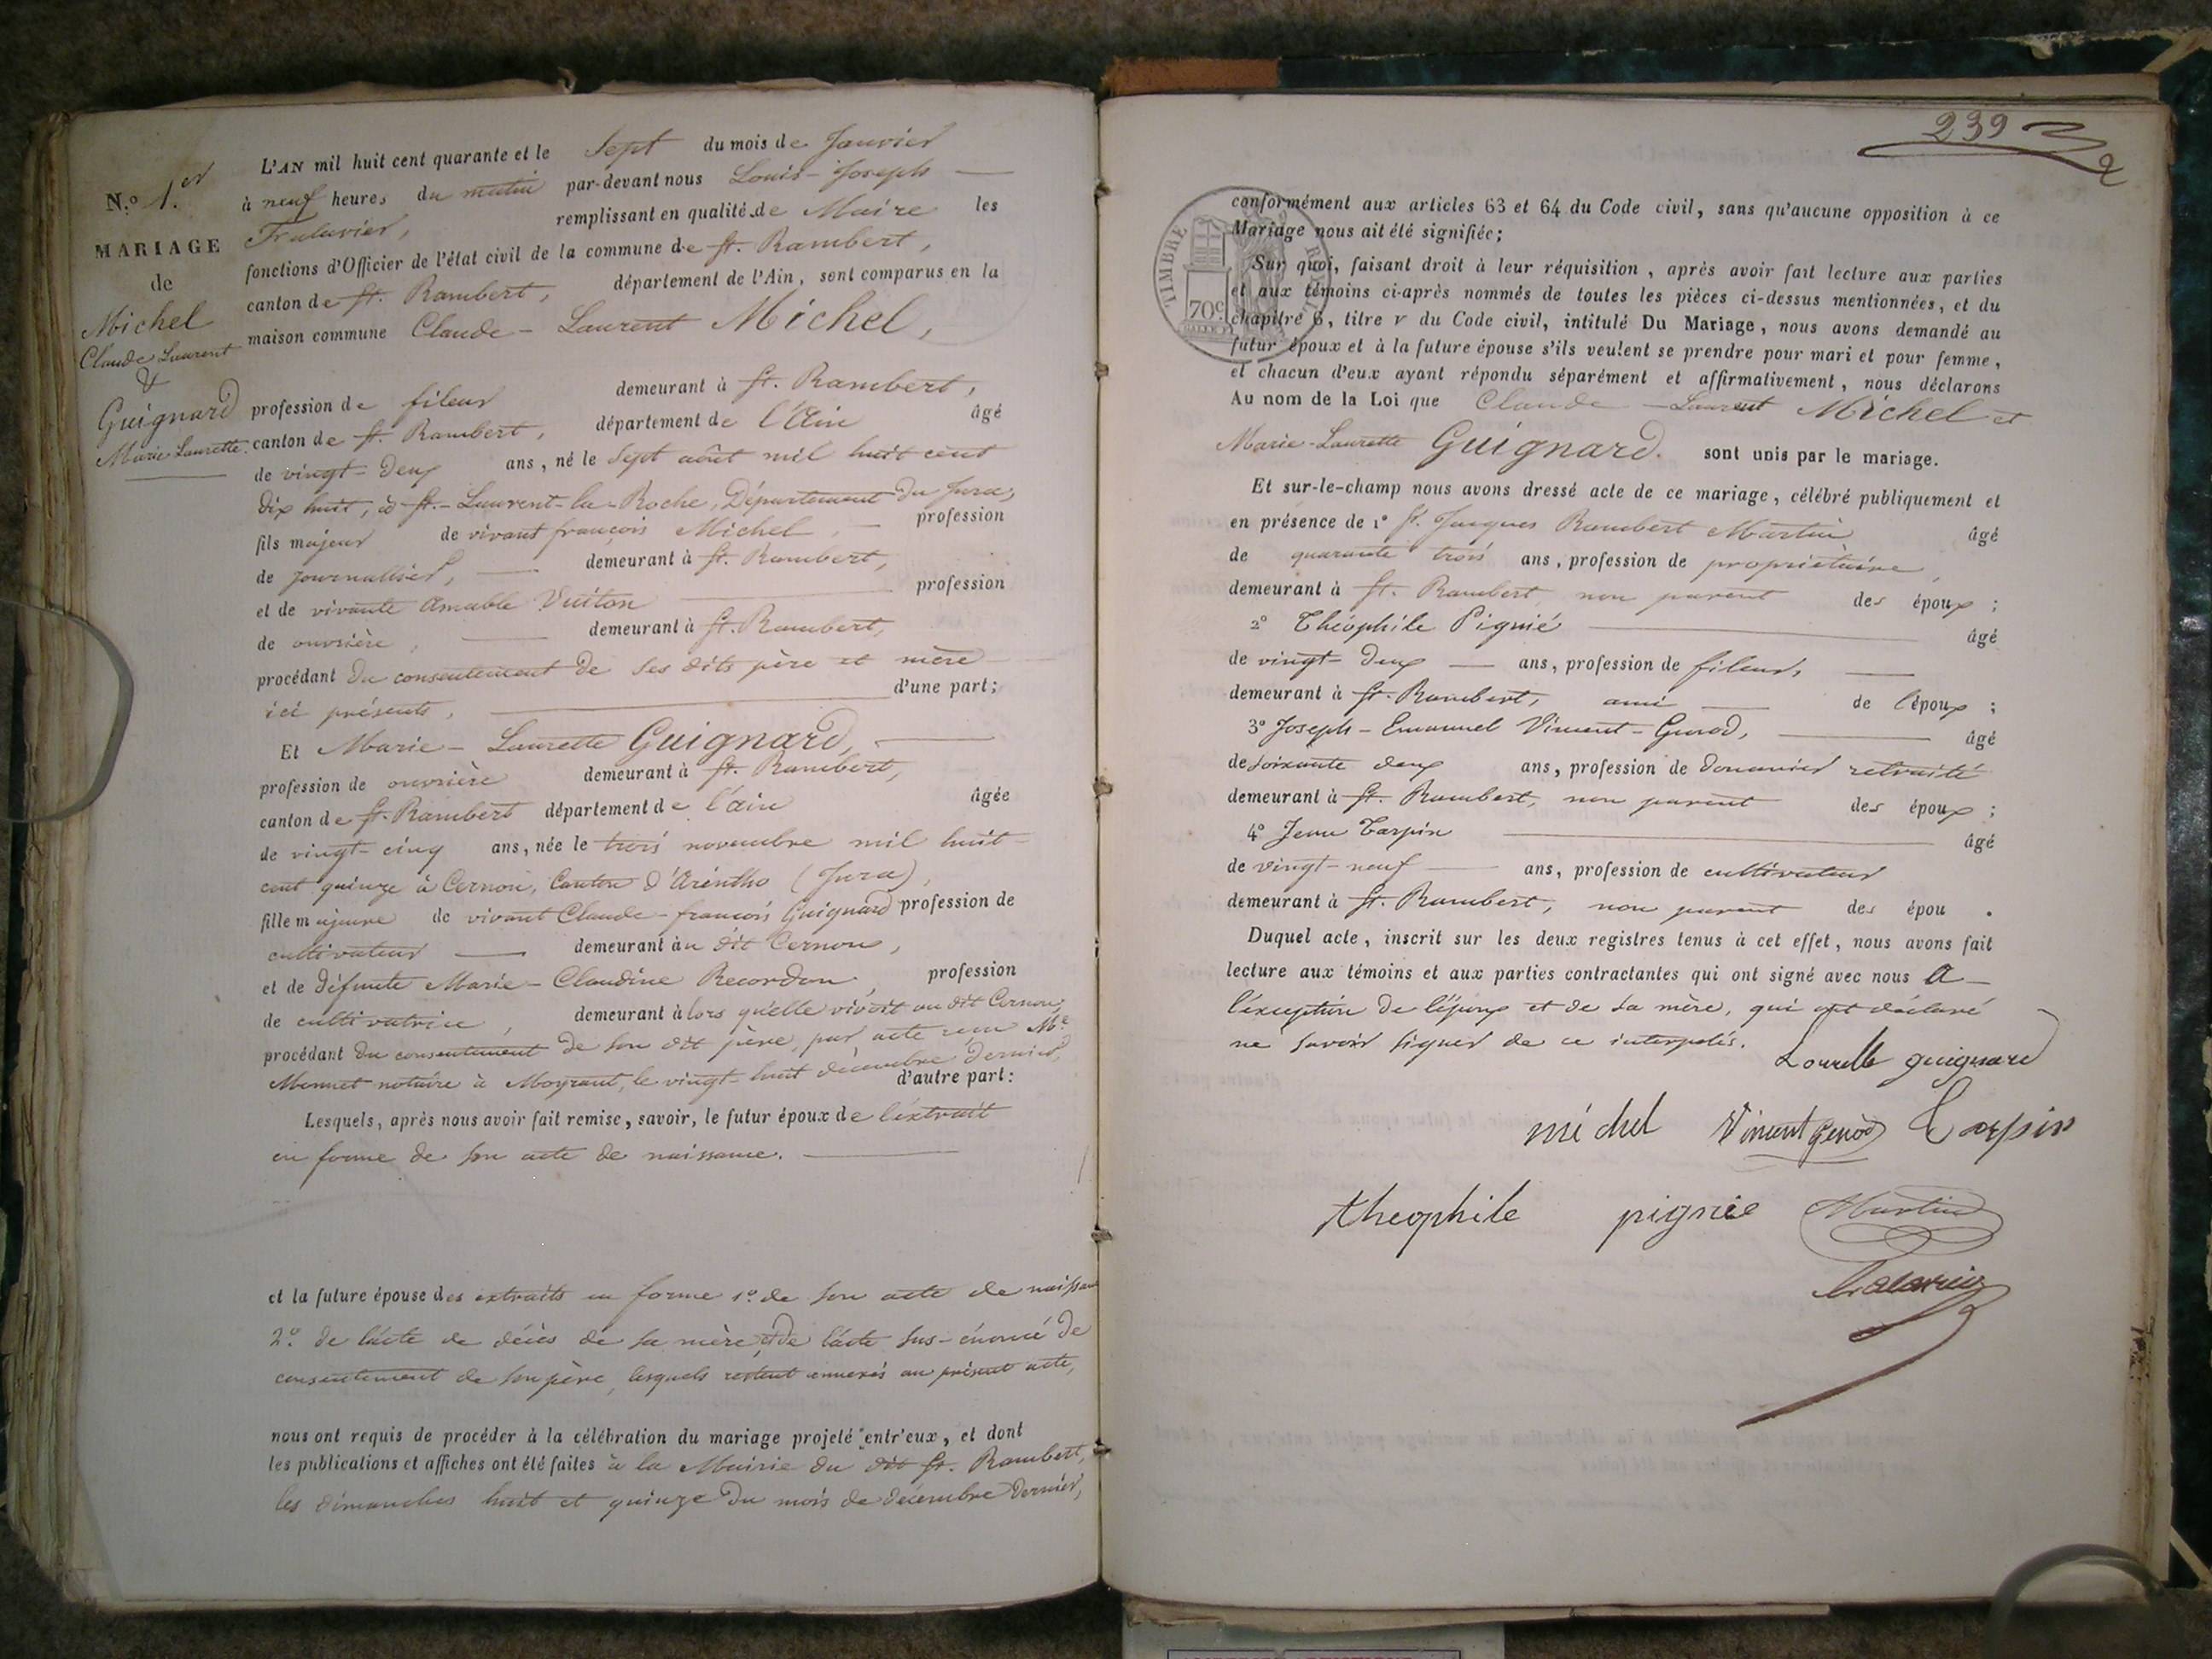 N.º 1.er
MARIAGE
de
Michel
Claude Laurent
&
Guignard
Marie Laurette.
L'AN mil huit cent quarante et le Sept du mois de Janvier
à neuf heures du matin par-devant nous Louis-Joseph
remplissant en qualité de Maire les
fonctions d'Officier de l'état civil de la commune de St. Rambert,
canton de St. Rambert, département de l'Ain, sont comparus en la
maison commune Claude-Laurent Michel,
profession de fileur demeurant à St. Rambert,
canton de St. Rambert, département de l'Ain âgé
de vingt-deux ans, né le Sept août mil huit cent
dix huit, à St.-Laurent-la-Roche, Département du Jura,
fils majeur de vivant françois Michel, profession
de journallier, demeurant à St. Rambert,
et de vivante Amable Vuiton profession
de ouvrière, demeurant à St. Rambert,
procédant du consentement de ses dits père et mère
ici présents, d'une part;
Et Marie-Laurette Guignard,
profession de ouvrière demeurant à St. Rambert,
canton de St. Rambert département de l'ain âgée
de vingt-cinq ans, née le trois novembre mil huit-
cent quinze à Cernon, Canton d'Arintho (Jura),
fille majeure de vivant Claude-françois Guignard profession de
cultivateur demeurant àu dit Cernon,
et de défunte Marie-Claudine Recordon, profession
de cultivatrice, demeurant à lors qu'elle vivoit au dit Cernon,
procédant du consentement de son dit père, par acte reçu Me.
Monnet notaire à Moyrant, le vingt-huit décembre dernier,
d'autre part:
Lesquels, après nous avoir fait remise, savoir, le futur époux de l'extrait
en forme de son acte de naissance.
et la future épouse des extraits en forme 1º de son acte de
2º. de l'acte de décès de sa mère, et de l'acte sus-énoncé de
consentement de son père, lesquels restent annexés au présent acte,
nous ont requis de procéder à la célébration du mariage projeté entr'eux, et dont
les publications et affiches ont été faites à la Mairie du dit St. Rambert,
les dimanches huit et quinze du mois de décembre dernier,
239
2
TIMBRE
70c
conformément aux articles 63 et 64 du Code civil, sans qu'aucune opposition à ce
Mariage nous ait été signifiée;
Sur quoi, faisant droit à leur réquisition, après avoir fait lecture aux parties
et aux témoins ci-après nommés de toutes les pièces ci-dessus mentionnées, et du
chapitre 6, titre V du Code civil, intitulé Du Mariage, nous avons demandé au
futur époux et à la future épouse s'ils veulent se prendre pour mari et pour femme,
et chacun d'eux ayant répondu séparément et affirmativement, nous déclarons
Au nom de la Loi que Claude-Laurent Michel et
Marie-Laurette Guignard. sont unis par le mariage.
Et sur-le-champ nous avons dressé acte de ce mariage, célébré publiquement et
en présence de 1º Sr. Jacques Rambert Martin âgé
de quarante trois ans, profession de propriétaire,
demeurant à St. Rambert, non parent des époux;
2º Théophile Pignié âgé
de vingt-deux ans, profession de fileur,
demeurant à St. Rambert, ami de l'époux;
3º Joseph-Emanuel Vincent-Genod, âgé
de soixante deux ans, profession de douanier retraité
demeurant à St. Rambert, non parent des époux;
4º Jean Tarpin âgé
de vingt-neuf ans, profession de cultivateur
demeurant à St. Rambert, non parent des épou.
Duquel acte, inscrit sur les deux registres tenus à cet effet, nous avons fait
lecture aux témoins et aux parties contractantes qui ont signé avec nous A-
l'exception de l'époux et de sa mère, qui ont déclaré
ne savoir signer de ce interpelés.
guignard
michel Vincent Genod Tarpin
theophile pignie Martin